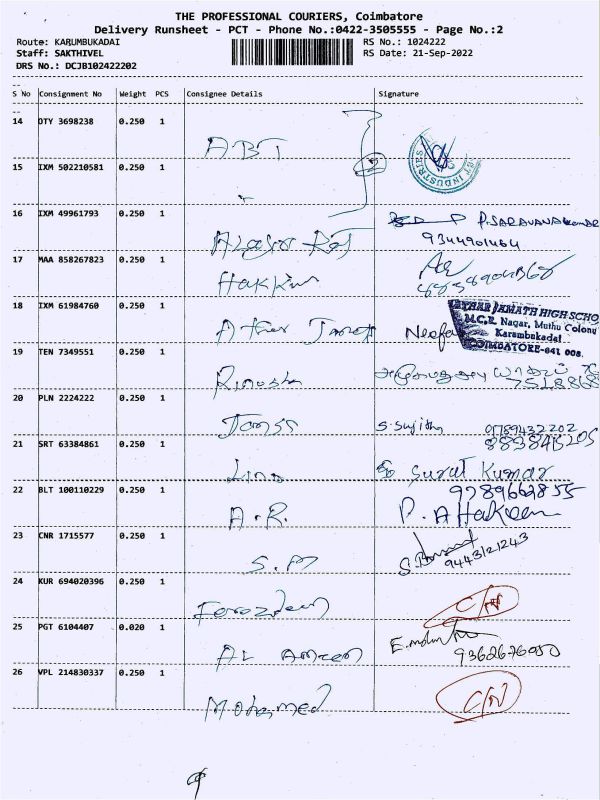 THE PROFESSIONAL COURIERS, Coimbatore
Delivery Runsheet - PCT - Phone No.:0422-3505555 - Page No.:2
Route: KARUMBUKADAI RS No.: 1024222
Staff: SAKTHIVEL RS Date: 21-Sep-2022
DRS No.: DCJB102422202
S No Consignment No Weight PCS Consignee Details Signature
14 OTY 3698238 0.250 1
ABT
2
INDUSTRIES
15 IXM 502210581 0.250 1
16 IXM 49961793 0.250 1
P.SARAVANAKUMAR
9344901464
17 MAA 858267823 0.250 1
Hakkim
18 IXM 61984760 0.250 1
JAMATH HIGH SCHO
M.C.R. Nagar, Muthu Colony
Karumbukadai
COIMBATORE-641 008.
19 TEN 7349551 0.250 1
20 PLN 2224222 0.250 1
S. Sujitha
21 SRT 63384861 0.250 1
Surat Kumar
9789662855
22 BLT 100110229 0.250 1
A.R. P. A Hakeem
23 CNR 1715577 0.250 1
S.M
9443121243
24 KUR 694020396 0.250 1
25 PGT 6104407 0.020 1
AL Ameen
9362676050
26 VPL 214830337 0.250 1
Mohamed